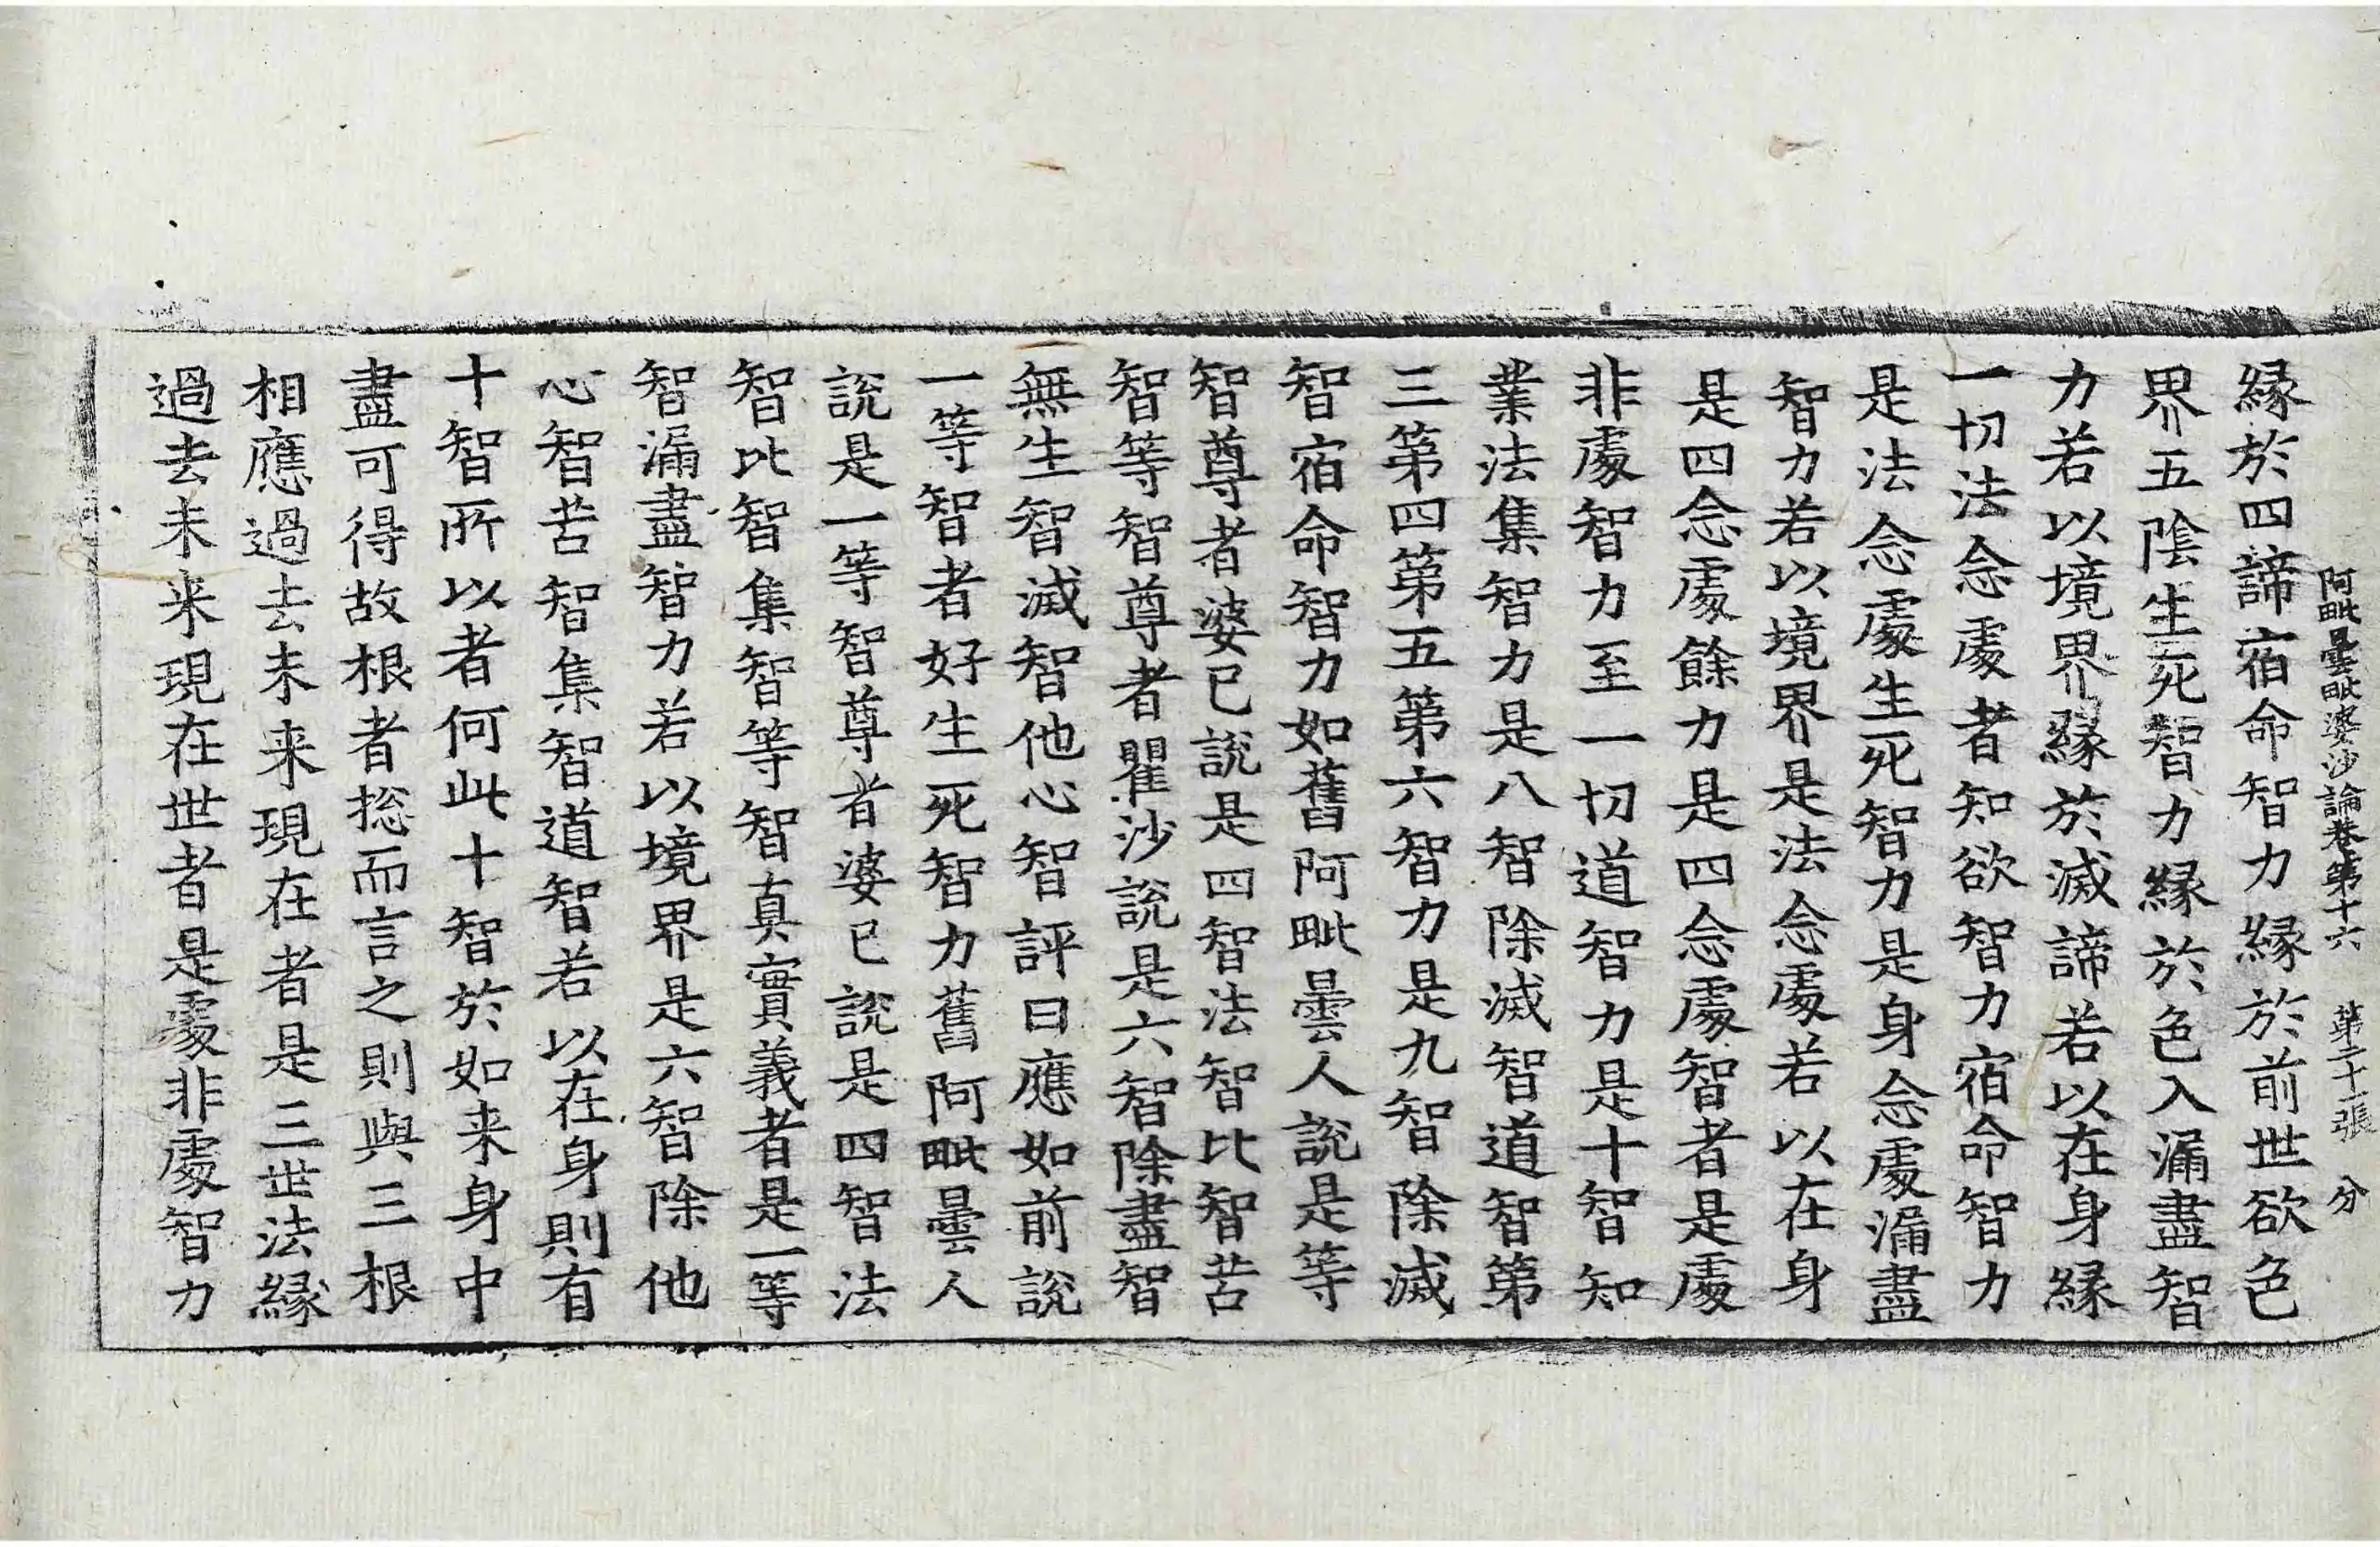 阿毗曇毗婆沙論卷第十六　第二十一張　分
緣於四諦宿命智力緣於前世欲色
界五陰生死智力緣於色入漏盡智
力若以境界緣於滅諦若以在身緣
一切法念處者知欲智力宿命智力
是法念處生死智力是身念處漏盡
智力若以境界是法念處若以在身
是四念處餘力是四念處智者是處
非處智力至一切道智力是十智知
業法集智力是八智除滅智道智第
三第四第五第六智力是九智除滅
智宿命智力如舊阿毗曇人說是等
智尊者婆已說是四智法智比智苦
智等智尊者瞿沙說是六智除盡智
無生智滅智他心智評曰應如前說
一等智者好生死智力舊阿毗曇人
說是一等智尊者婆已說是四智法
智比智集智等智真實義者是一等
智漏盡智力若以境界是六智除他
心智苦智集智道智若以在身則有
十智所以者何此十智於如来身中
盡可得故根者捴而言之則與三根
相應過去未来現在者是三世法緣
過去未来現在世者是處非處智力